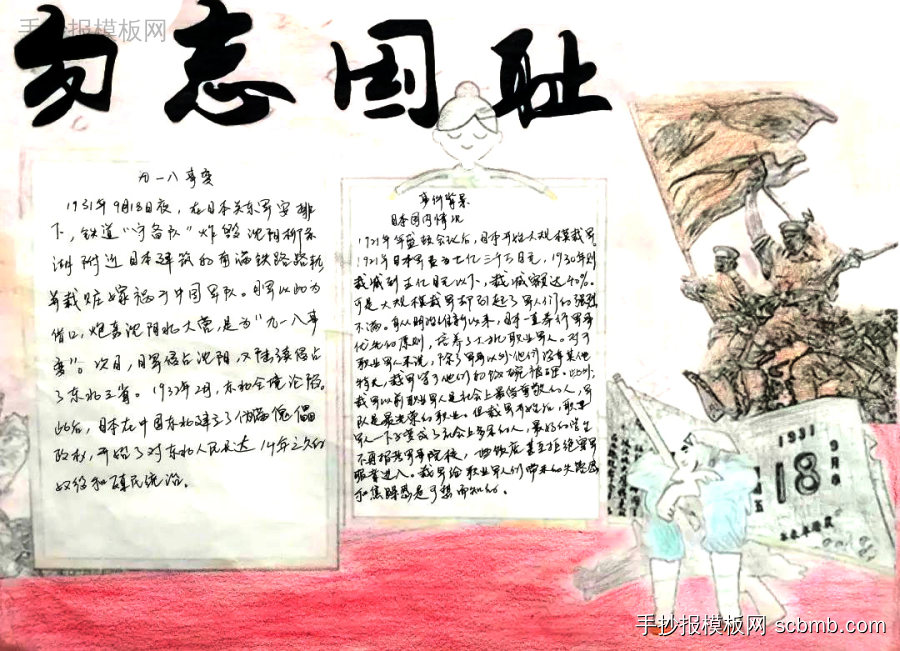 手抄报模板网
勿忘国耻
九一八事变
1931年9月18日夜，在日本关东军安排
下，铁道"守备队"炸毁沈阳柳条
湖附近日本建筑的南满铁路路轨
并栽赃嫁祸于中国军队。日军以此为
借口，炮轰沈阳北大营，是为"九一八事
变"。次日，日军侵占沈阳，又陆续侵占
了东北三省。1932年2月，东北全境沦陷。
此后，日本在中国东北建立了伪满傀儡
政权，开始了对东北人民长达14年之久的
奴役和殖民统治。
事件背景
日本国内情况
1921年华盛顿会议后，日本开始大规模裁军。
1921年日本军费为七亿三千万日元，1930年则
裁减到五亿日元以下，裁减额达40%。
可是大规模裁军却引起了军人们的强烈
不满。自从明治维新以来，日本一直奉行军事
优先的原则，培养了大批职业军人。对于
职业军人来说，除了军事以外他们没有其他
特长，裁军等于他们的饭碗被砸。此外，
裁军以前职业军人是社会上最受尊敬的人，军
队是最光荣的职业。但裁军开始后，职业
军人一下子变成了社会上多余的人，最好的学生
不再报考军事院校，
服者进入。裁军给职业军人们带来的失落感
和焦躁感是可想而知的。
1931
9月
18
手抄报模板网 scbmb.com